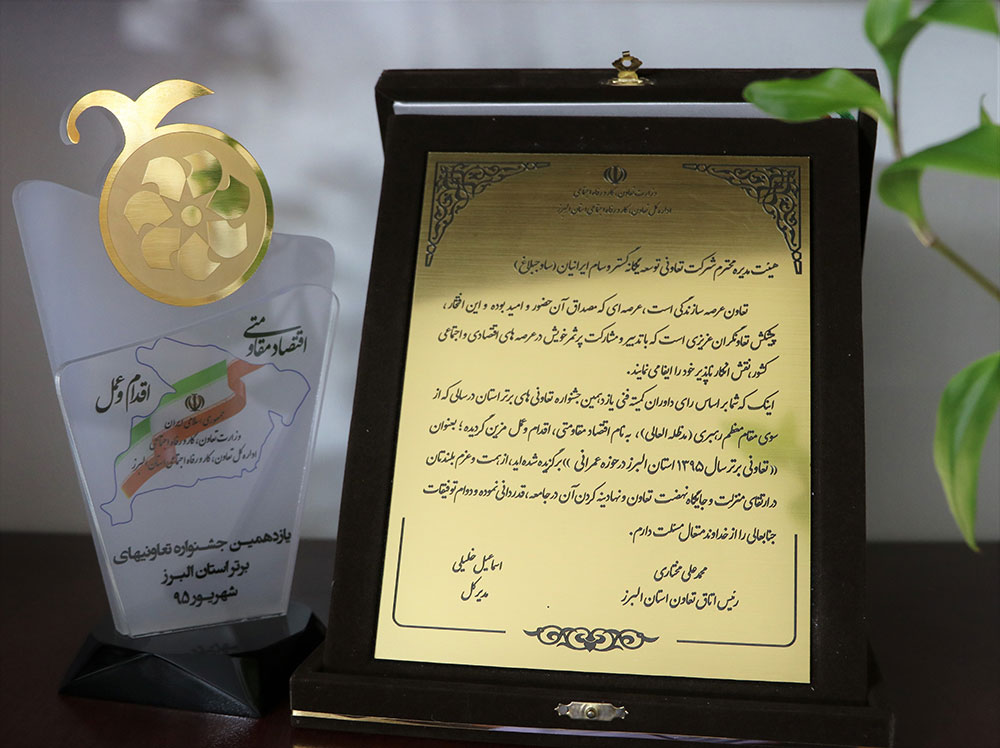 اقتصاد مقاومتی
اقدام و عمل
جمهوری اسلامی ایران
وزارت تعاون، کار و رفاه اجتماعی
اداره کل تعاون، کار و رفاه اجتماعی استان البرز
یازدهمین جشنواره تعاونیهای
برتر استان البرز
شهریور ۹۵
وزارت تعاون، کار و رفاه اجتماعی
اداره کل تعاون، کار و رفاه اجتماعی استان البرز
هیئت مدیره محترم شرکت تعاونی توسعه یگانه گستر وسام ایرانیان (ساوجبلاغ)
تعاون عرصه سازندگی است، عرصه ای که مصداق آن حضور و امید بوده و این افتخار،
پیشکش تعاونگران عزیزی است که با تدبیر و مشارکت پرثمر خویش در عرصه های اقتصادی و اجتماعی
کشور، نقش انکار ناپذیر خود را ایفا می نمایند.
اینک که شما بر اساس رای داوران کمیته فنی یازدهمین جشنواره تعاونی های برتر استان در سالی که از
سوی مقام معظم رهبری (مدظله العالی)، به نام اقتصاد مقاومتی، اقدام و عمل مزین گردیده؛ بعنوان
«تعاونی برتر سال ۱۳۹۵ استان البرز در حوزه عمرانی» برگزیده شده اید، از همت و عزم بلندتان
در ارتقای منزلت و جایگاه نهضت تعاون و نهادینه کردن آن در جامعه، قدردانی نموده و دوام توفیقات
جنابعالی را از خداوند متعال مسئلت دارم.
محمد علی مختاری
رئیس اتاق تعاون استان البرز
اسماعیل خلیلی
مدیر کل